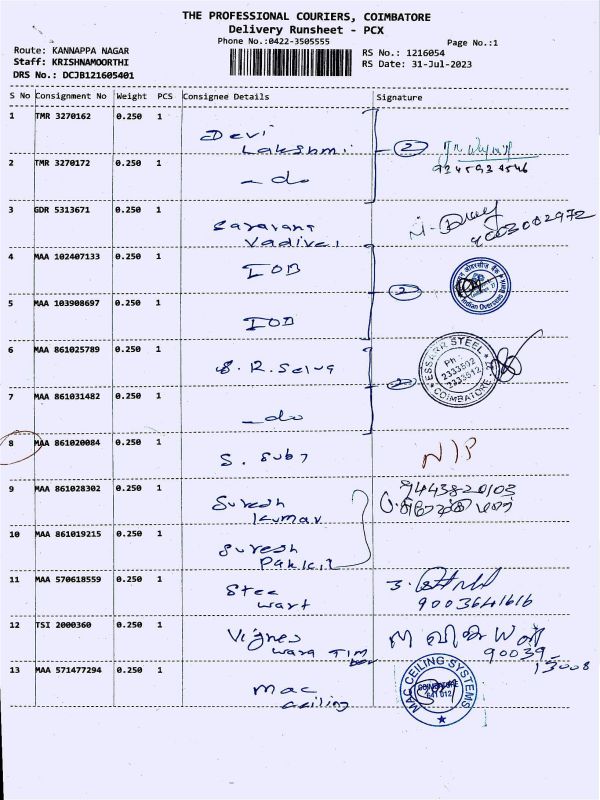 THE PROFESSIONAL COURIERS, COIMBATORE
Delivery Runsheet - PCX
Phone No.:0422-3505555
Page No.:1
Route: KANNAPPA NAGAR
RS No.: 1216054
Staff: KRISHNAMOORTHI
RS Date: 31-Jul-2023
DRS No.: DCJB121605401
S No Consignment No Weight PCS Consignee Details Signature
1 TMR 3270162 0.250 1 Devi Lakshmi
2
2 TMR 3270172 0.250 1 - do
3 GDR 5313671 0.250 1 Saravana Vadivel
9003002972
4 MAA 102407133 0.250 1 IOB
2
Indian Overseas Bank
5 MAA 103908697 0.250 1 IOB
6 MAA 861025789 0.250 1 S. R. Selva
2
ESSARR STEEL
Ph :
2333502
3333512
COIMBATORE
7 MAA 861031482 0.250 1 - do
8 MAA 861020084 0.250 1 S. Subi N/P
9 MAA 861028302 0.250 1 Suresh Kumar
9443820103
10 MAA 861019215 0.250 1 Suresh
11 MAA 570618559 0.250 1 Stee wart
9003641616
12 TSI 2000360 0.250 1 Vignes wara Tim ber
90039
13008
13 MAA 571477294 0.250 1 Mac ceiling
MAC CEILING SYSTEMS
COIMBATORE
641 012